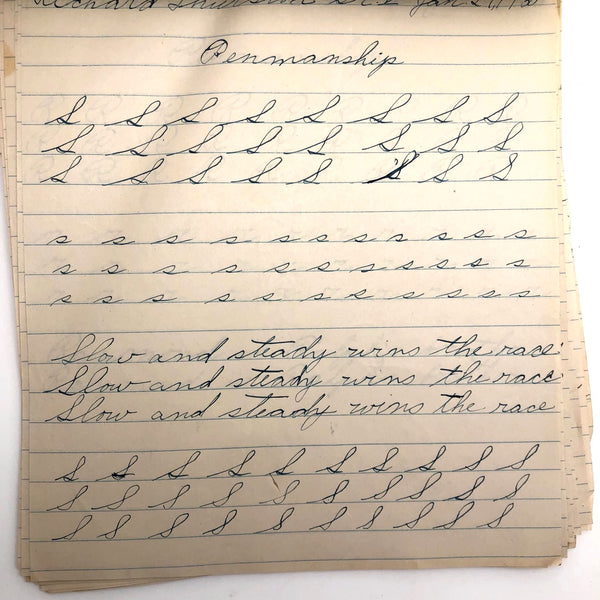 Richard Jan
Penmanship
S S S S S S S S
S S S S S S S S
S S S S S S S S
s s s s s s s s s s s
s s s s s s s s s s s
s s s s s s s s s s s
Slow and steady wins the race.
Slow and steady wins the race
Slow and steady wins the race
S S S S S S S S S S S
S S S S S S S S S S S
S S S S S S S S S S S